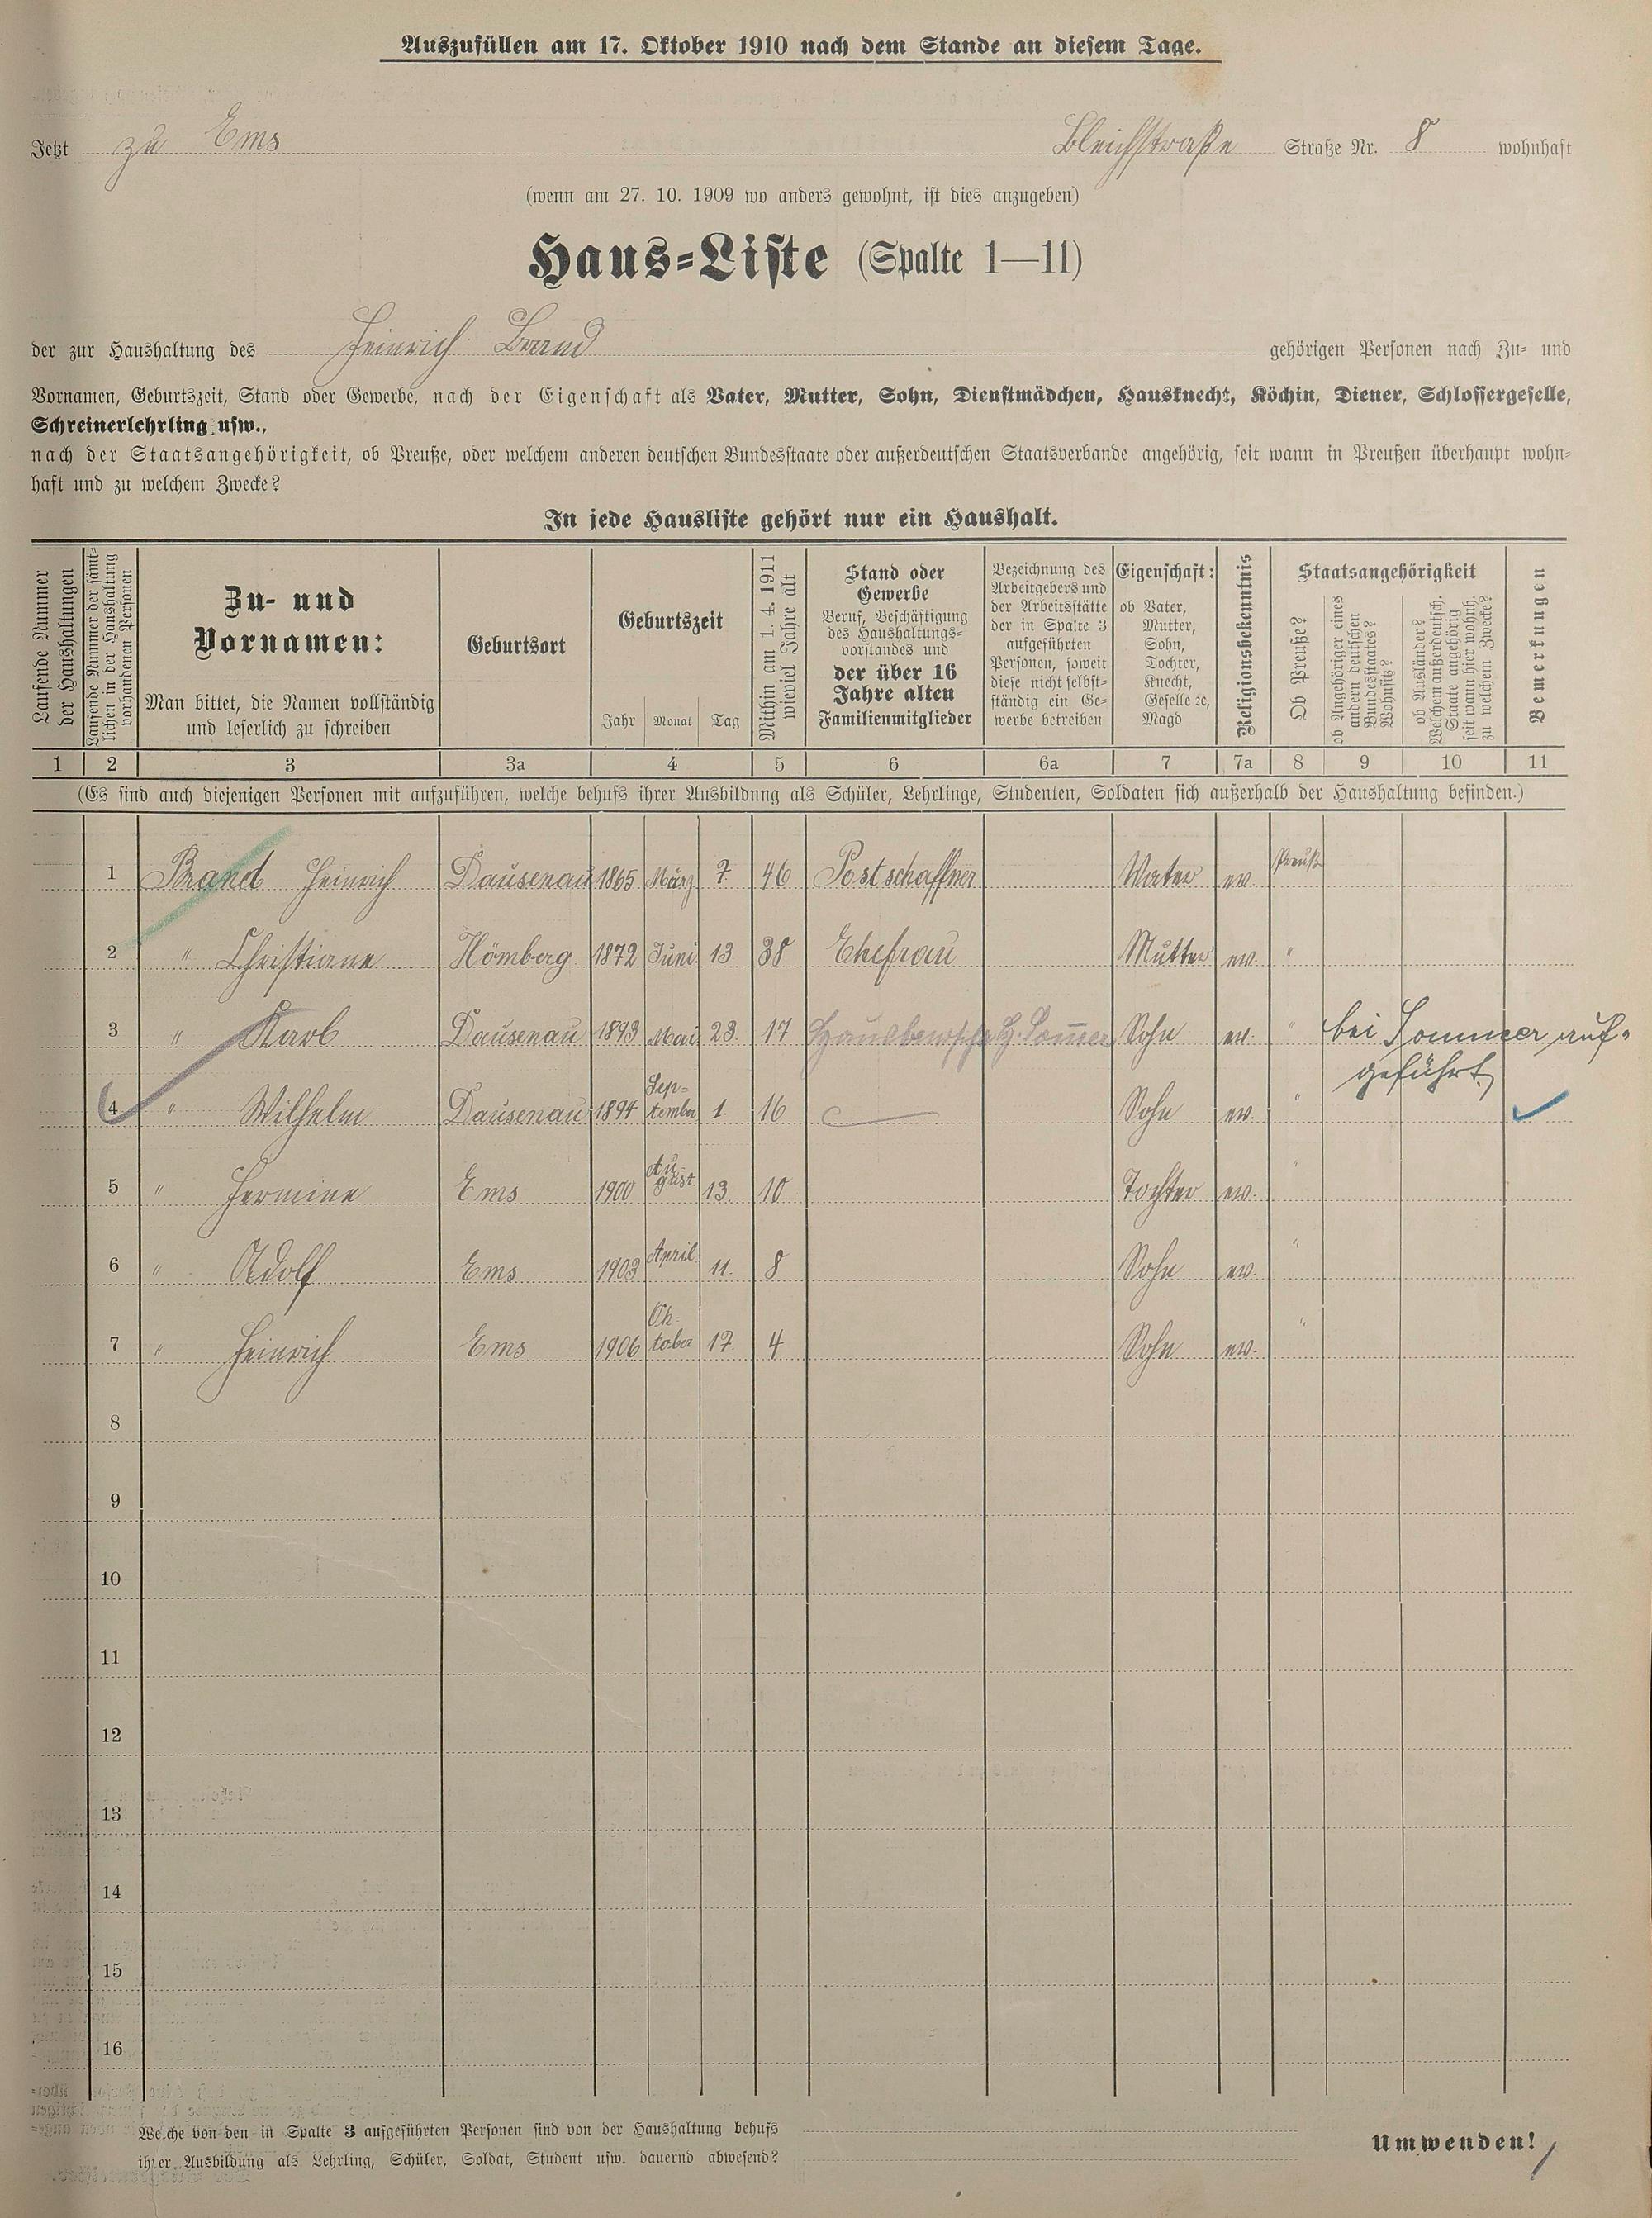 Auszufüllen am 17. Oktober 1910 nach dem Stande an diesem Tage.
Jetzt zu Ems Bleichstraße Straße Nr. 8 wohnhaft
(wenn am 27. 10. 1909 wo anders gewohnt, ist dies anzugeben)
Haus-Liste (Spalte 1—11)
der zur Haushaltung des Heinrich Brand gehörigen Personen nach Zu- und
Vornamen, Geburtszeit, Stand oder Gewerbe, nach der Eigenschaft als Vater, Mutter, Sohn, Dienstmädchen, Hausknecht, Köchin, Diener, Schlossergeselle,
Schreinerlehrling usw.,
nach der Staatsangehörigkeit, ob Preuße, oder welchem anderen deutschen Bundesstaate oder außerdeutschen Staatsverbande angehörig, seit wann in Preußen überhaupt wohn-
haft und zu welchem Zwecke?
In jede Hausliste gehört nur ein Haushalt.
Laufende Nummer
der Haushaltungen
Laufende Nummer der sämt-
lichen in der Haushaltung
vorhandenen Personen
Zu- und
Vornamen:
Man bittet, die Namen vollständig
und leserlich zu schreiben
Geburtsort
Geburtszeit
Jahr Monat Tag
Mithin am 1. 4. 1911
wieviel Jahre alt
Stand oder
Gewerbe
Beruf, Beschäftigung
des Haushaltungs-
vorstandes und
der über 16
Jahre alten
Familienmitglieder
Bezeichnung des
Arbeitgebers und
der Arbeitsstätte
der in Spalte 3
aufgeführten
Personen, soweit
diese nicht selbst-
ständig ein Ge-
werbe betreiben
Eigenschaft:
ob Vater,
Mutter,
Sohn,
Tochter,
Knecht,
Geselle ꝛc,
Magd
Religionsbekenntnis
Staatsangehörigkeit
Ob Preuße?
ob Angehöriger eines
andern deutschen
Bundesstaates?
Wohnsitz?
ob Ausländer?
Welchem außerdeutsch.
Staate angehörig
seit wann hier wohnh.
zu welchem Zwecke?
Bemerkungen
1 2 3 3a 4 5 6 6a 7 7a 8 9 10 11
(Es sind auch diejenigen Personen mit aufzuführen, welche behufs ihrer Ausbildung als Schüler, Lehrlinge, Studenten, Soldaten sich außerhalb der Haushaltung befinden.)
1 Brand Heinrich Dausenau 1865 März 7 46 Postschaffner Vater ev. Preuße
2 " Christiane Hömberg 1872 Juni 13 38 Ehefrau Mutter ev. "
3 " Karl Dausenau 1893 Mai 23 17 Hausbursche H. Somer Sohn ev. " bei Sommer auf-
geführt
4 " Wilhelm Dausenau 1894 Sep-
tember 1. 16 Sohn ev. "
5 " Hermine Ems 1900 Au-
gust 13. 10 Tochter ev. "
6 " Adolf Ems 1903 April 11. 8 Sohn ev. "
7 " Heinrich Ems 1906 Ok-
tober 17. 4 Sohn ev. "
8
9
10
11
12
13
14
15
16
Welche von den in Spalte 3 aufgeführten Personen sind von der Haushaltung behufs
ihrer Ausbildung als Lehrling, Schüler, Soldat, Student usw. dauernd abwesend?
Umwenden!